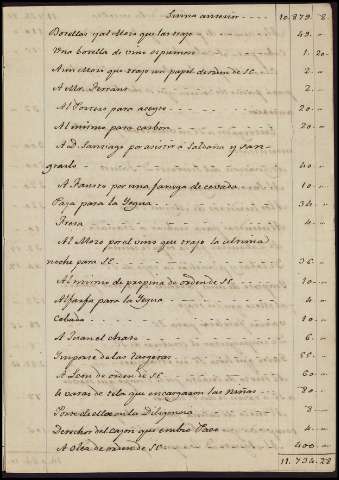 Suma anterior - - - 10.879. 8.
Botellas y al Mozo que las trajo - - - 49. "
Una botella de vino espumoso - - - 1. 20
A un Mozo que trajo un papel de orden de SE. 2. "
A Mr. Ferrans - - - 2. "
Al Portero para aceyte - - - 20. "
Al mismo para carbon - - - 20. "
A D. Santiago por asistir a Saldaña y san-
grarlo - - - 40. "
A Fausto por una fanega de cevada 10. "
Paja para la Yegua - - - 34. "
Fresa - - - 4. "
Al Mozo por el vino que trajo la ultima
noche para SE. - - - 36. "
Al mismo de propina de orden de SE. - - - 10. "
Alfalfa para la Yegua - - - 4. "
Cebada - - - 10. "
A Juan el - - - 6. "
Importe de las targetas - - - 55. "
A Leon de orden de SE. - - - 60. "
4 varas de tela que encargaron las niñas - - - 80. "
Porte en la Diligencia - - - 8. "
Derechos del cajon que embió Paco - - - 4. "
A de orden de SE. - - - 400. "
11.734. 28